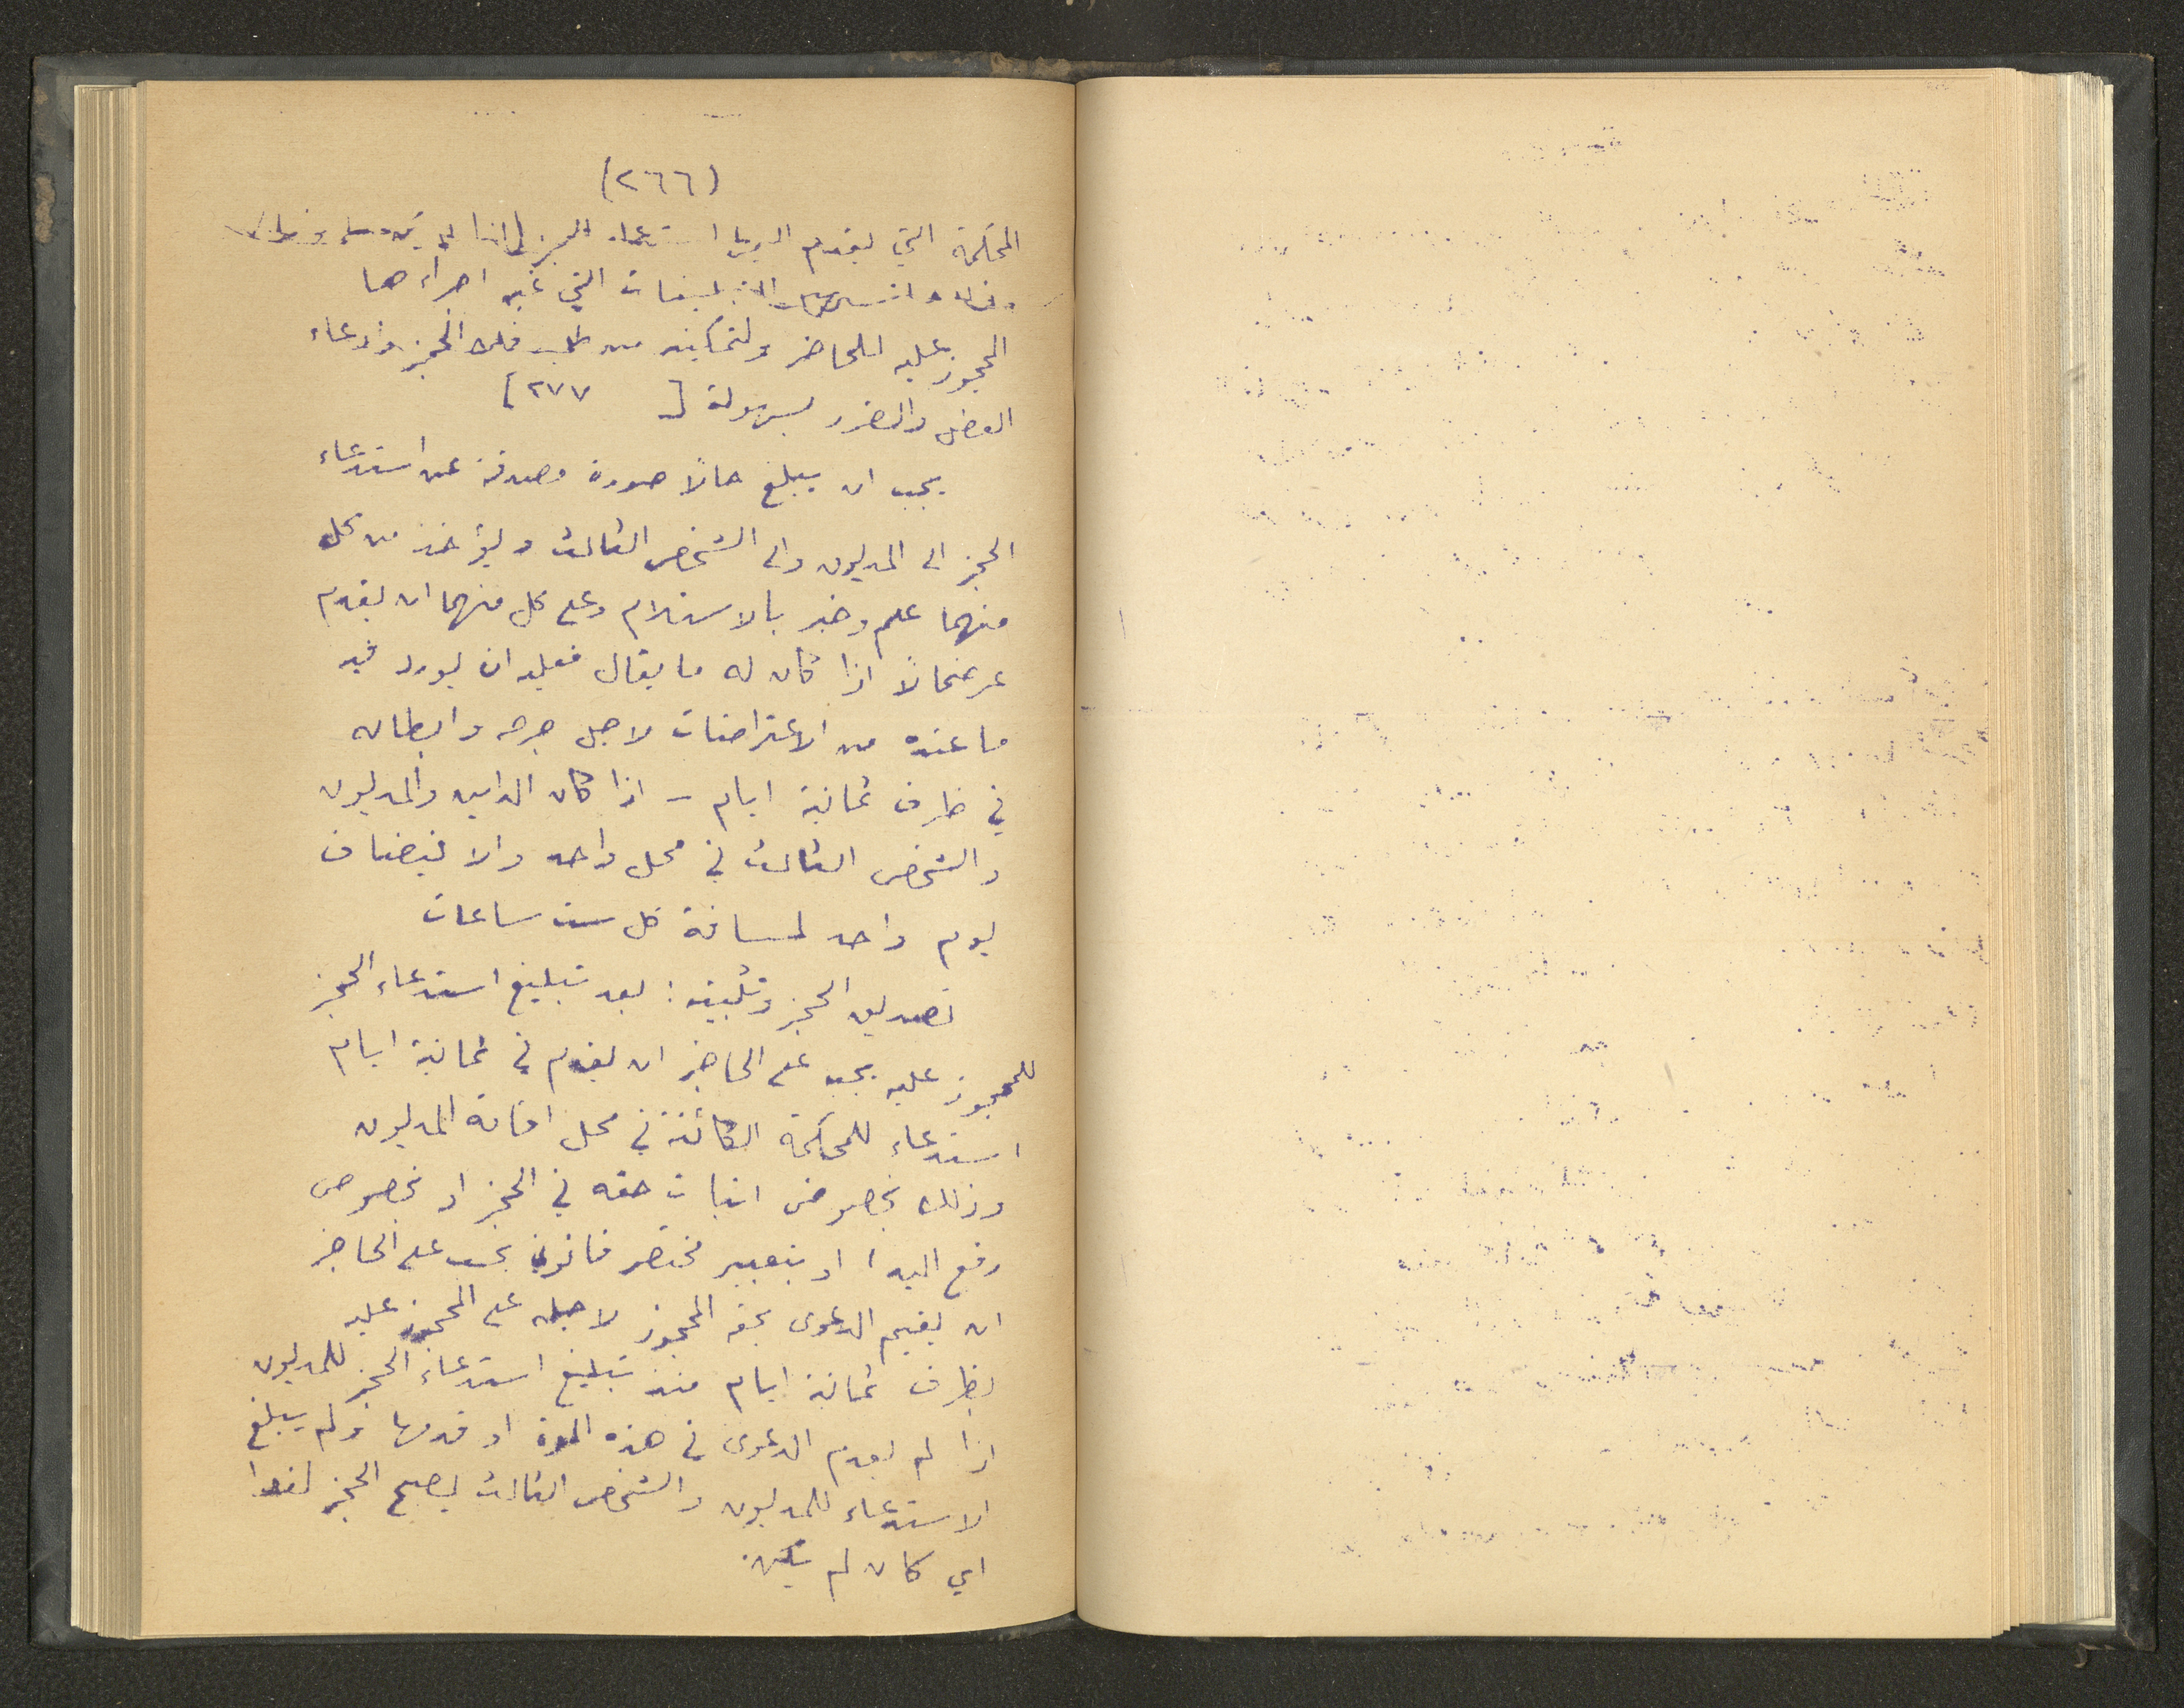 (٢٦٦)
المحكمة التي يقدم اليها استدعاء الحجز
التبليغات التي غبه اجراءها
المحجوز عليه للحاضر ولتمكينه من طلب فك الحجز وادعاء
العطل والضرر بسهولة [ ٢٧٧ ]
يجب ان يبلغ حالاً صورة مصدقة عن استدعاء
الحجز الى المديون والى الشخص الثالث ويؤخذ من كل
منهما علم وخبر بالاستلام وعلى كل منهما ان يقدم
عرضحالاً اذا كان له ما يقال فعليه ان يورد فيه
ما عنده من الاعتراضات لاجل جرحه وابطاله
في ظرف ثمانية ايام - اذا كان الداين والمديون
والشخص الثالث في محل واحد والا فيضاف
يوم واحد لمسافة كل ست ساعات
تصديق الحجز وتثبيته : بعد تبليغ استدعاء الحجز
للمحجوز عليه يجب على الحاجز ان يقدم في ثمانية ايام
استدعاء للمحكمة الكائنة في محل اقامة المديون
وذلك بخصوص اثبات حقه في الحجز او بخصوص
رفع اليد ، او بتعبير مختصر قانوني يجب على الحاجز
ان يقيم الدعوى بحقه المحجوز لاجله على المحجوز عليه
بظرف ثمانية ايام منذ تبليغ استدعاء الحجز للمديون
اذا لم يقدم الدعوى في هذه المدة او قدمها ولم يبلغ
الاستدعاء للمديون والشخص الثالث يصبح الحجز لغوا
اي كان لم يكن.